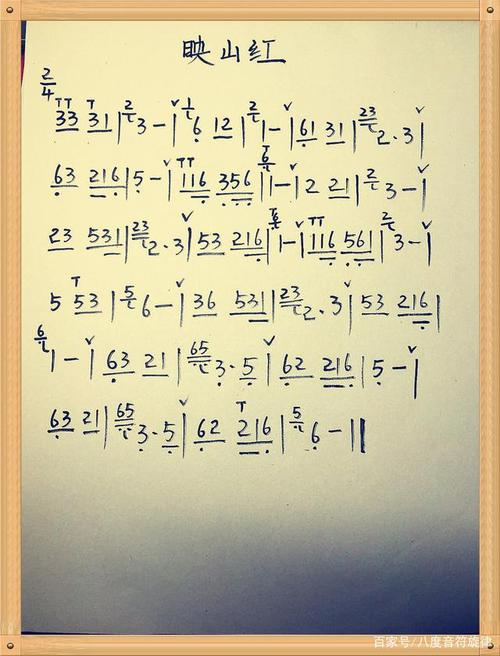 映山红
2/4
33 31 | 2 3 - | 1 6 12 | 2 1 - | 61 31 | 23 2· 3 |
63 216 | 5 - | 116 356 | 6 1 - | 2 21 | 2 3 - |
23 531 | 23 2· 3 | 53 216 | 6 1 - | 116 561 | 2 3 - |
5 53 | 5 6 - | 36 53 | 23 2· 3 | 53 216 |
6 1 - | 63 21 | 65 3· 5 | 62 216 | 5 - |
63 21 | 65 3· 5 | 62 216 | 5 6 - ||
百家号/八度音符旋律